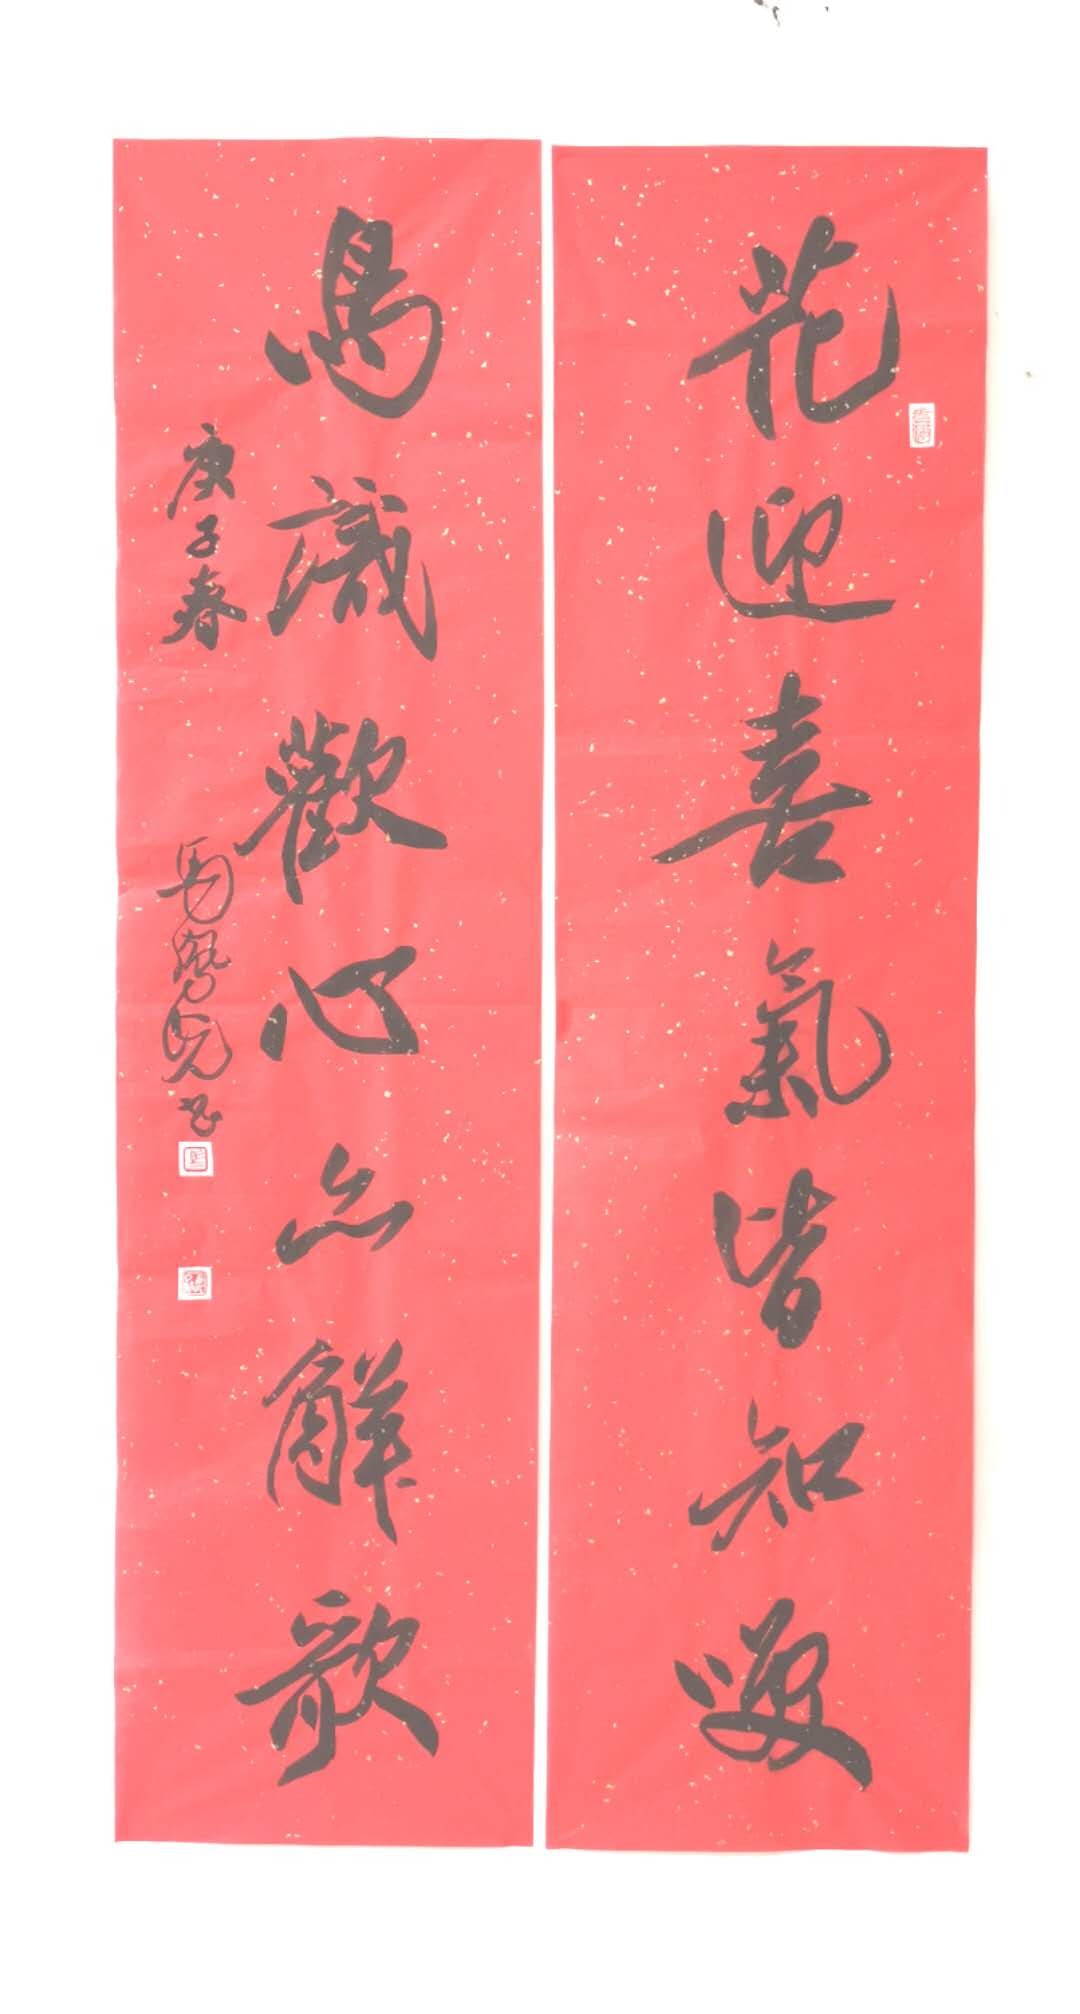 花迎喜氣皆知笑
鳥識歡心亦解歌
庚子春